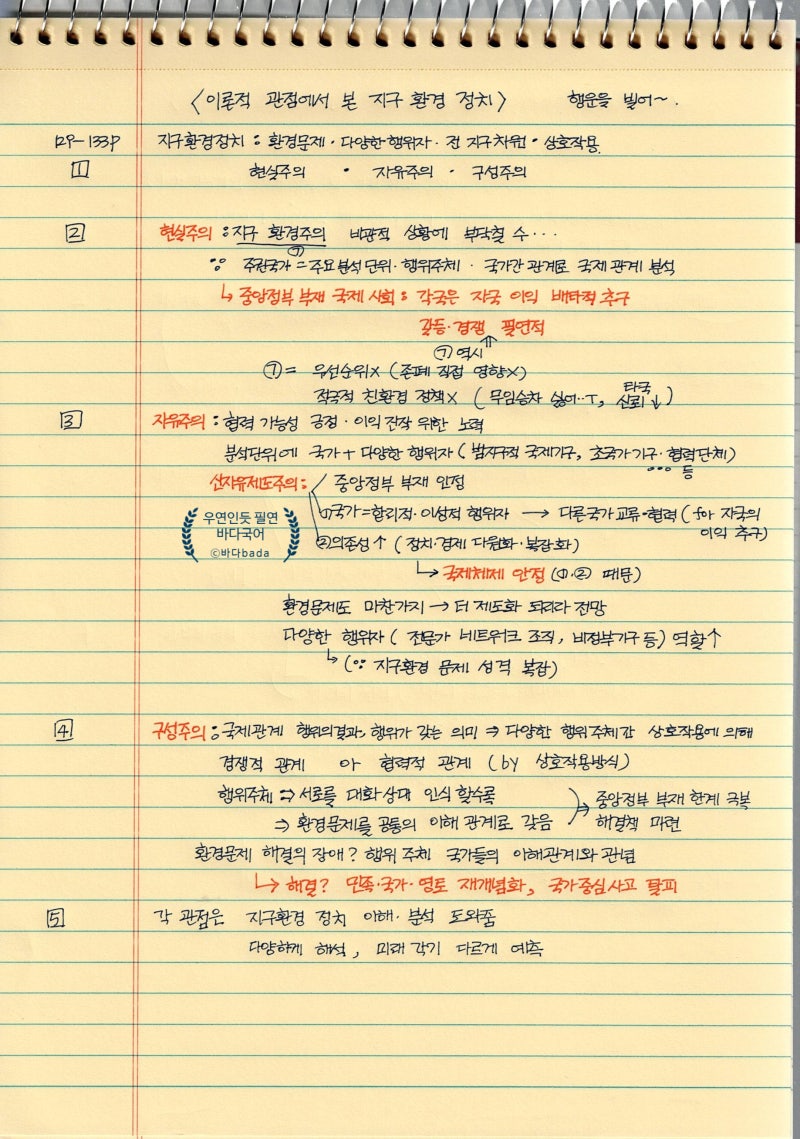 〈이론적 관점에서 본 지구 환경 정치〉 행운을 빌어~.
129-133P 지구환경정치 : 환경문제·다양한 행위자·전 지구차원·상호작용.
1 현실주의 · 자유주의 · 구성주의
2 현실주의 : 지구 환경주의 비관적 상황에 부닥칠 수···
㉠
∵ 주권국가 = 주요 분석 단위·행위주체· 국가간 관계로 국제 관계 분석
↳ 중앙정부 부재 국제 사회 : 각국은 자국 이익 배타적 추구
갈등·경쟁 필연적
㉠ 역시 ⇑
㉠ = 우선순위X (존폐 직접 영향X)
적극적 친환경 정책X (무임승차 싫어··T, 타국 신뢰↓)
3 자유주의 : 협력 가능성 긍정·이익 건장 위한 노력
분석단위에 국가 + 다양한 행위자 (범지구적 국제기구, 초국가 기구·협력단체)
··· 등
신자유제도주의 : 중앙정부 부재 인정
①국가=합리적·이성적 행위자 → 다른국가 교류·협력 (for 자국의
이익 추구)
우연인듯 필연
바다국어
©바다bada
②의존성↑ (정치·경제 다원화·복잡화)
↳ 국제체제 안정 (①·② 때문)
환경문제도 마찬가지 → 더 제도화 되리라 전망
다양한 행위자 ( 전문가 네트워크 조직, 비정부기구 등) 역할↑
↳ (∵ 지구환경 문제 성격 복잡)
4 구성주의 : 국제관계 행위의 결과, 행위가 갖는 의미 ⇒ 다양한 행위주체간 상호작용에 의해
경쟁적 관계 or 협력적 관계 (by 상호작용방식)
행위주체 ⇒ 서로를 대화 상대 인식 할수록
⇒ 환경문제를 공통의 이해 관계로 갖음
→ 중앙정부 부재 한계 극복
해결책 마련
환경문제 해결의 장애? 행위 주체 국가들의 이해관계와 관념
↳ 해결? 민족·국가·영토 재개념화, 국가중심사고 탈피
5 각 관점은 지구환경 정치 이해·분석 도와줌
다양하게 해석, 미래 각기 다르게 예측